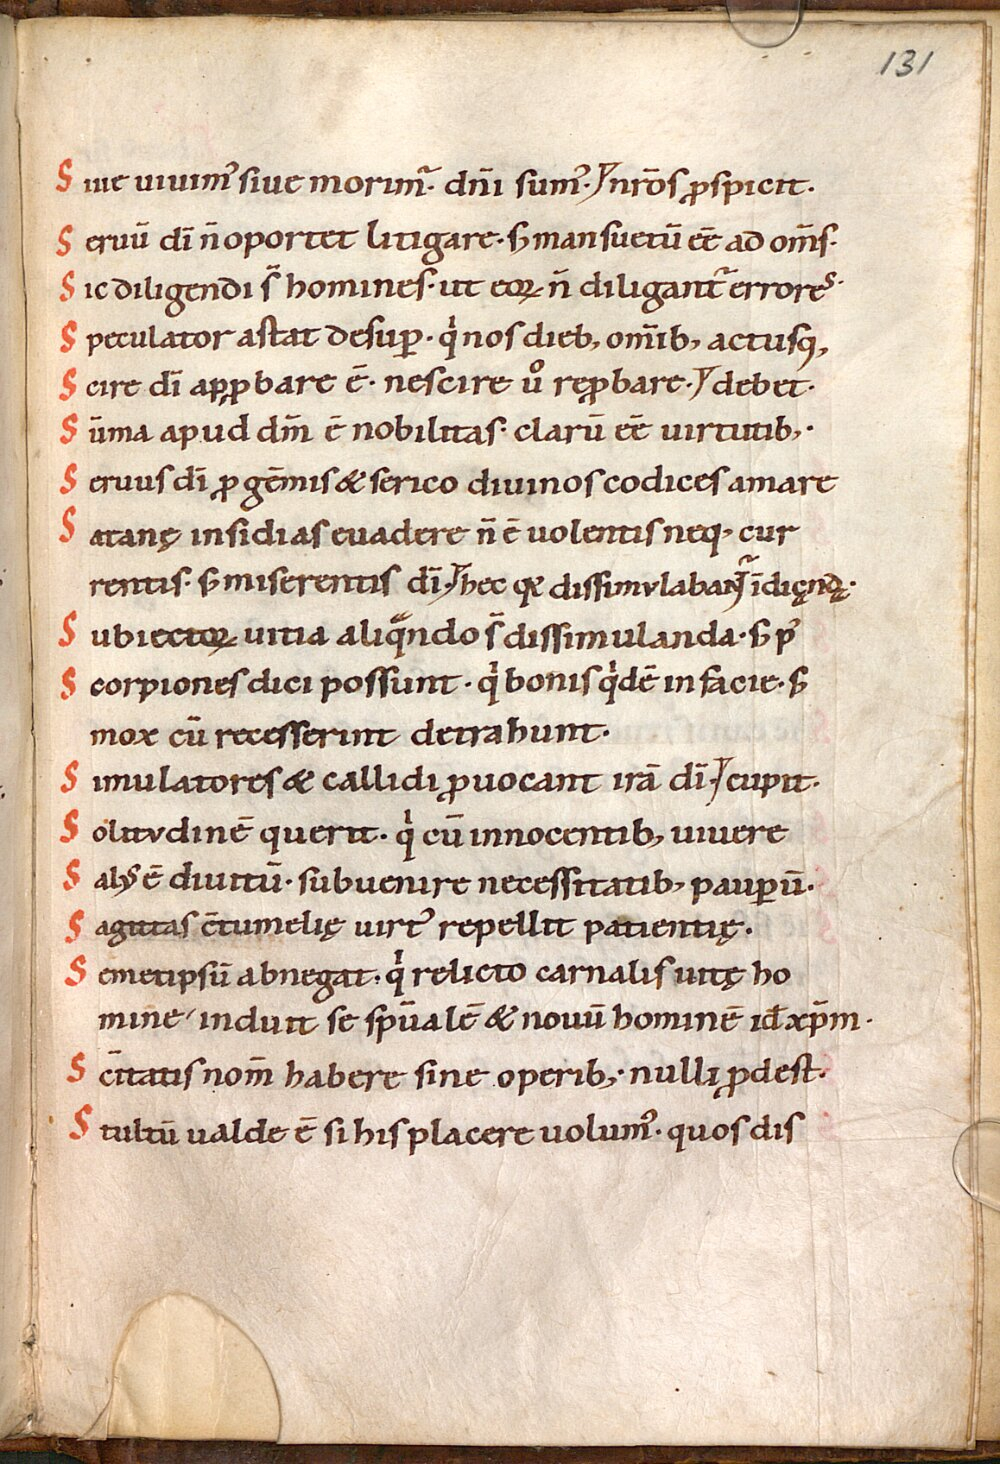 131
Siue uiuim᾽ siue morim̃· dñi sum᾽· nr̃os ꝓspicit·
Seruū dī ñ oportet litigare· sꝫ mansuetū eē ad om̄s·
Sic diligendi s̄ homines· ut eoꝝ ñ diligant᷑ errores·
Speculator astat desuꝑ· qͥ nos dieb; om̄ib; actusq;
Scire dī apꝓbare ē· nescire uͦ reꝓbare· debet·
Sūma apud dm̄ ē nobilitas· clarū eē uirtutib;·
Seruus dī ꝓ gēmis & serico diuinos codices amare
Satanę insidias euadere ñ ē uolentis neq; cur
rentis· sꝫ miserentis dī· hec qꝫ dissimulabant᷑ īdicęndę·
Subiectoꝝ uitia aliqᷓndo s̄ dissimulanda· sꝫ p᾽
Scorpiones dici possunt· qͥ bonis qͥdē in facie· sꝫ
mox cū recesserint detrahunt·
Simulatores & callidi ꝓuocant irā dī· cupit·
Solitudinē querit· qͥ cū innocentib; uiuere
Salꝰ ē diuitū· subuenire necessitatib; pauꝑū·
Sagittas c̄tumelię uirt᾽ repellit patientię·
Semetipsū abnegat· qͥ relicto carnalis uitę ho
mine induit se sp̄ualē & nouū hominē id̄ xp̄m·
Sc̄itatis nom̄ habere sine operib;· nulli ꝓdest·
Stultū ualde ē si his placere uolum᾽· quos dis